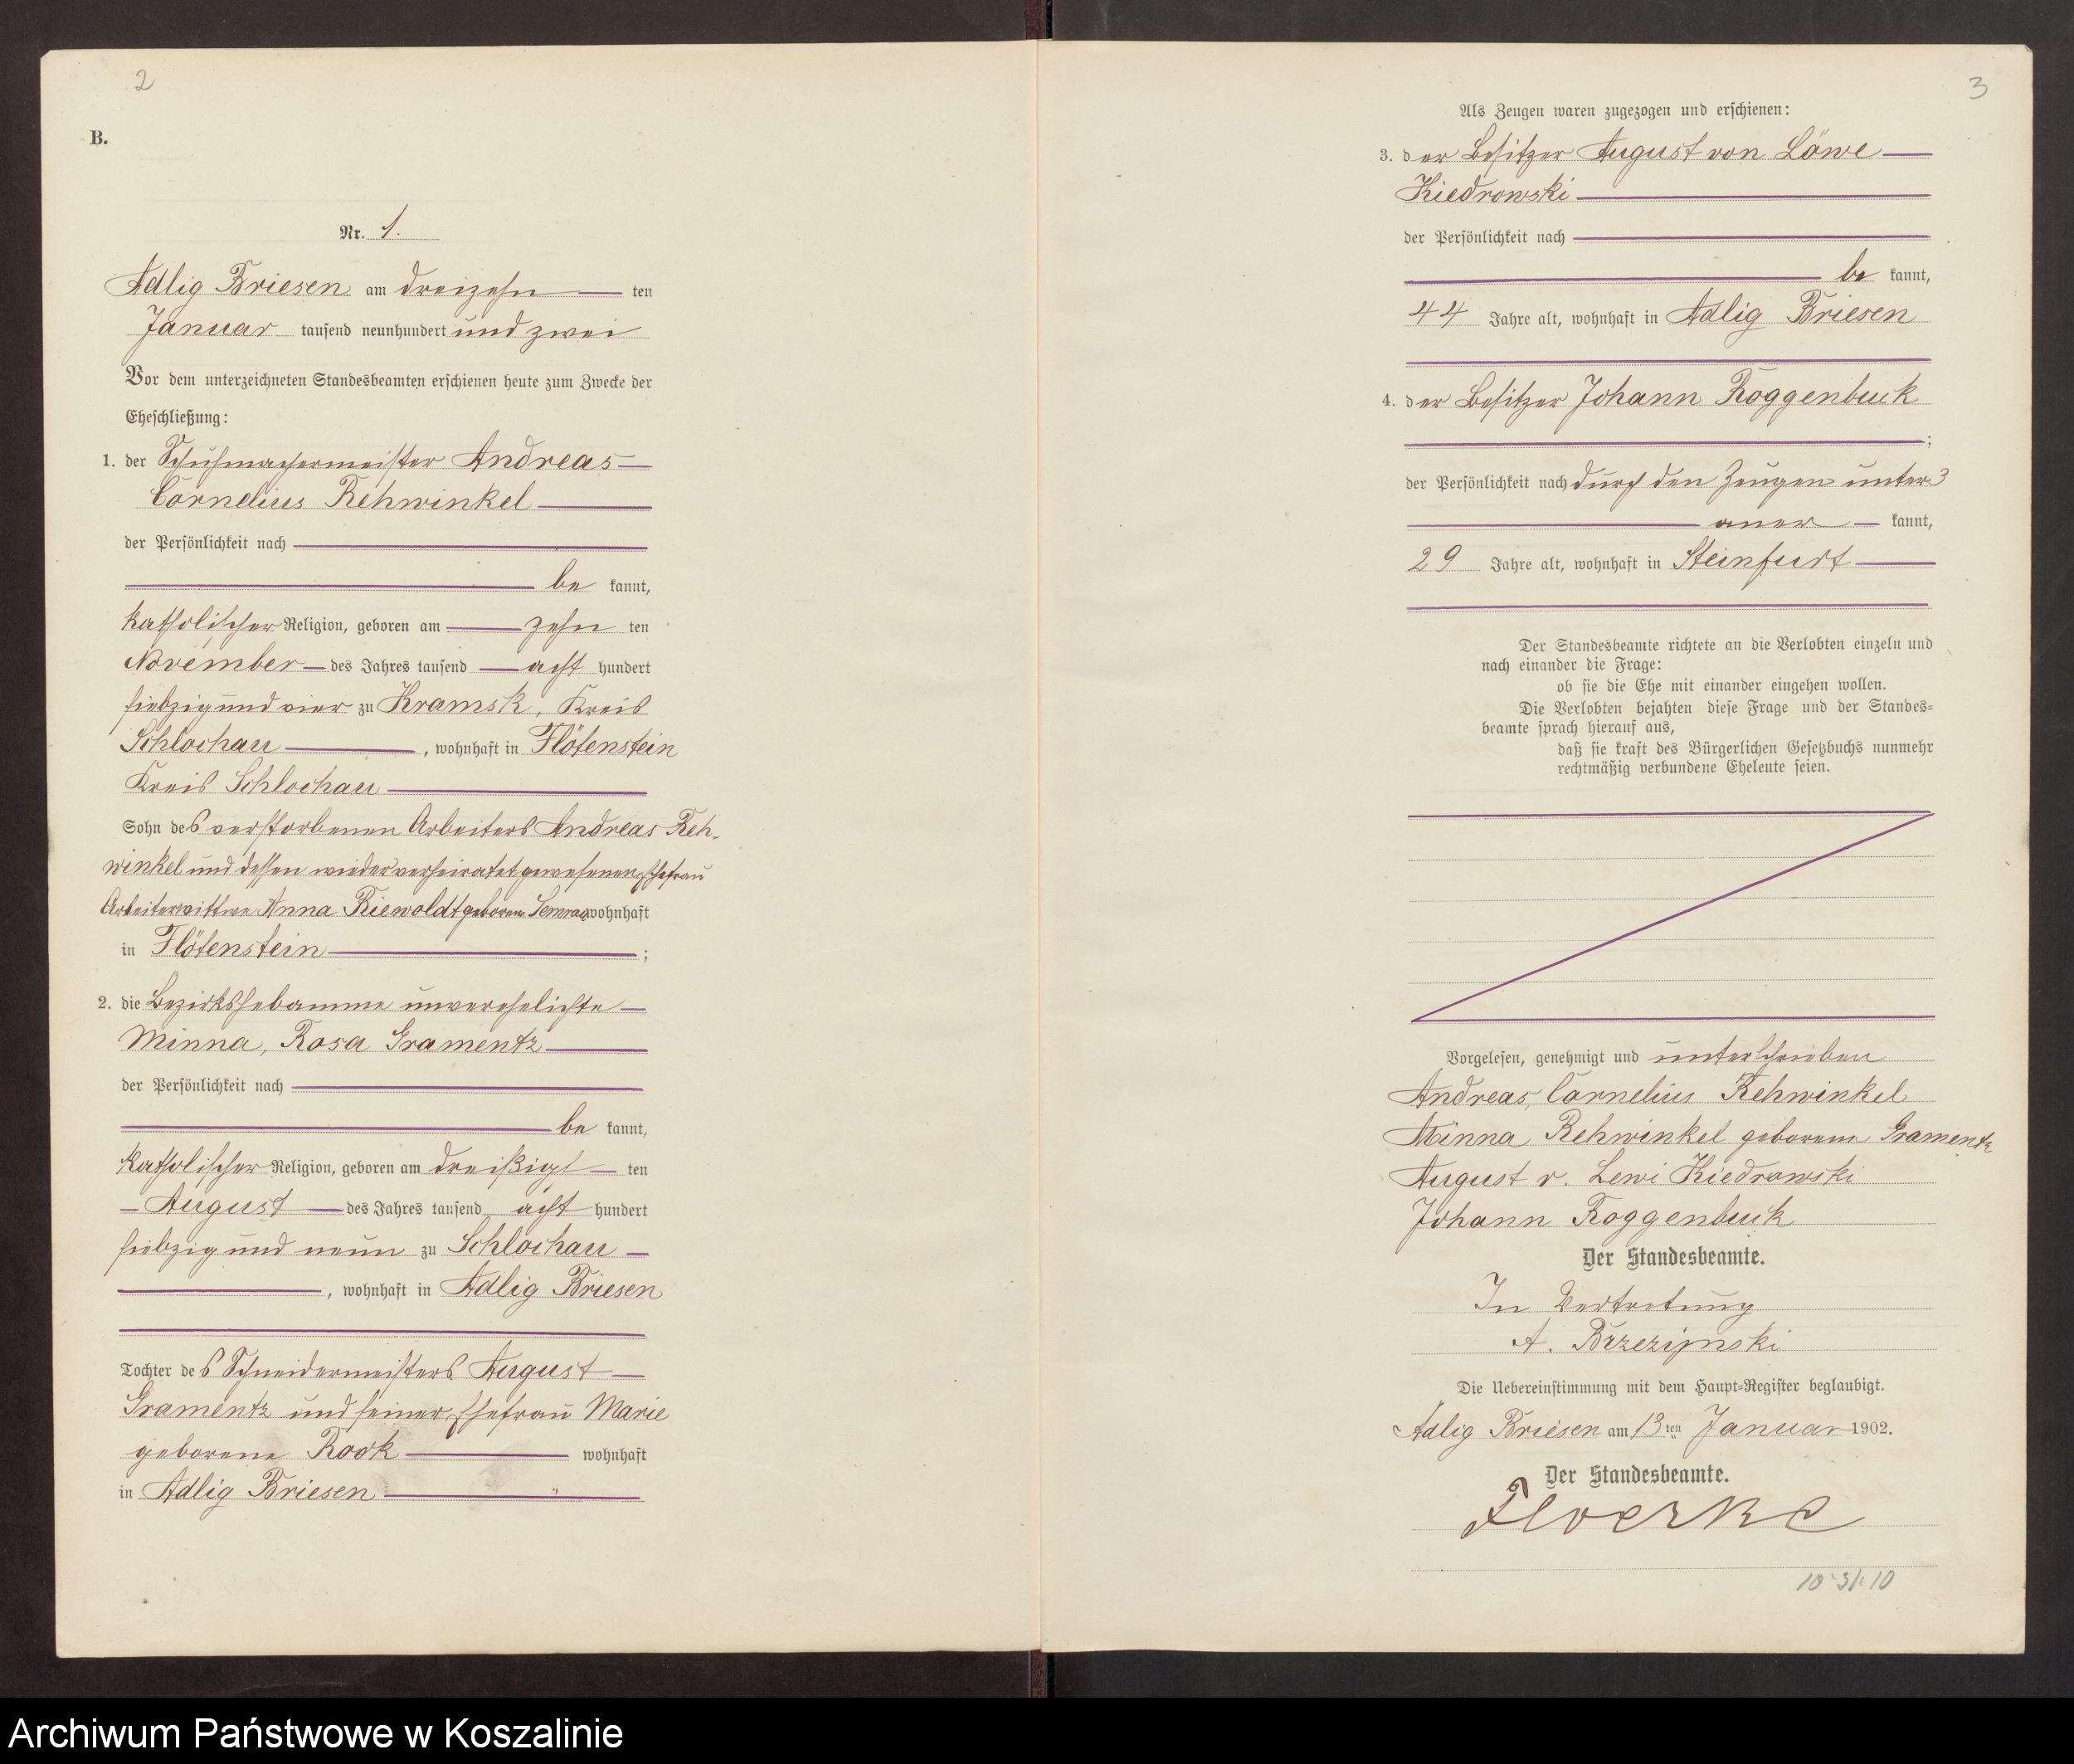 2
B.
Nr. 1.
Adlig Briesen am dreizehn ten
Januar tausend neunhundert und zwei
Vor dem unterzeichneten Standesbeamten erschienen heute zum Zwecke der
Eheschließung:
1. der Schuhmachermeister Andreas
Cornelius Rehwinkel
der Persönlichkeit nach
be kannt,
katholischer Religion, geboren am zehn ten
November des Jahres tausend acht hundert
siebzig und vier zu Kramsk, Kreis
Schlochau, wohnhaft in Flötenstein
Kreis Schlochau
Sohn des verstorbenen Arbeiters Andreas Reh-
winkel und dessen wiederverheiratet gewesenen Ehefrau
Arbeiterwittwe Anna Riewoldt geborene wohnhaft
in Flötenstein ;
2. die Bezirkshebamme unverehelichte
Minna, Rosa Gramentz
der Persönlichkeit nach
be kannt,
katholischer Religion, geboren am dreißigs ten
August des Jahres tausend acht hundert
siebzig und neun zu Schlochau
, wohnhaft in Adlig Briesen
Tochter des Schneidermeisters August
Gramentz und seiner Ehefrau Marie
geborene Rook wohnhaft
in Adlig Briesen
3
Als Zeugen waren zugezogen und erschienen:
3. der Besitzer August von Löwe
Kiedrowski
der Persönlichkeit nach
be kannt,
44 Jahre alt, wohnhaft in Adlig Briesen
4. der Besitzer Johann Roggenbuck
;
der Persönlichkeit nach durch den Zeugen unter 3
aner kannt,
29 Jahre alt, wohnhaft in Steinfurt
Der Standesbeamte richtete an die Verlobten einzeln und
nach einander die Frage:
ob sie die Ehe mit einander eingehen wollen.
Die Verlobten bejahten diese Frage und der Standes-
beamte sprach hierauf aus,
daß sie kraft des Bürgerlichen Gesetzbuchs nunmehr
rechtmäßig verbundene Eheleute seien.
Vorgelesen, genehmigt und unterschrieben
Andreas, Cornelius Rehwinkel
Minna Rehwinkel geborene Gramentz
August v. Lewi Kiedrowski
Johann Roggenbuck
Der Standesbeamte.
In Vertretung
A. Brzezinski
Die Uebereinstimmung mit dem Haupt-Register beglaubigt.
Adlig Briesen am 13ten Januar 1902.
Der Standesbeamte.
Floerke
Archiwum Państwowe w Koszalinie